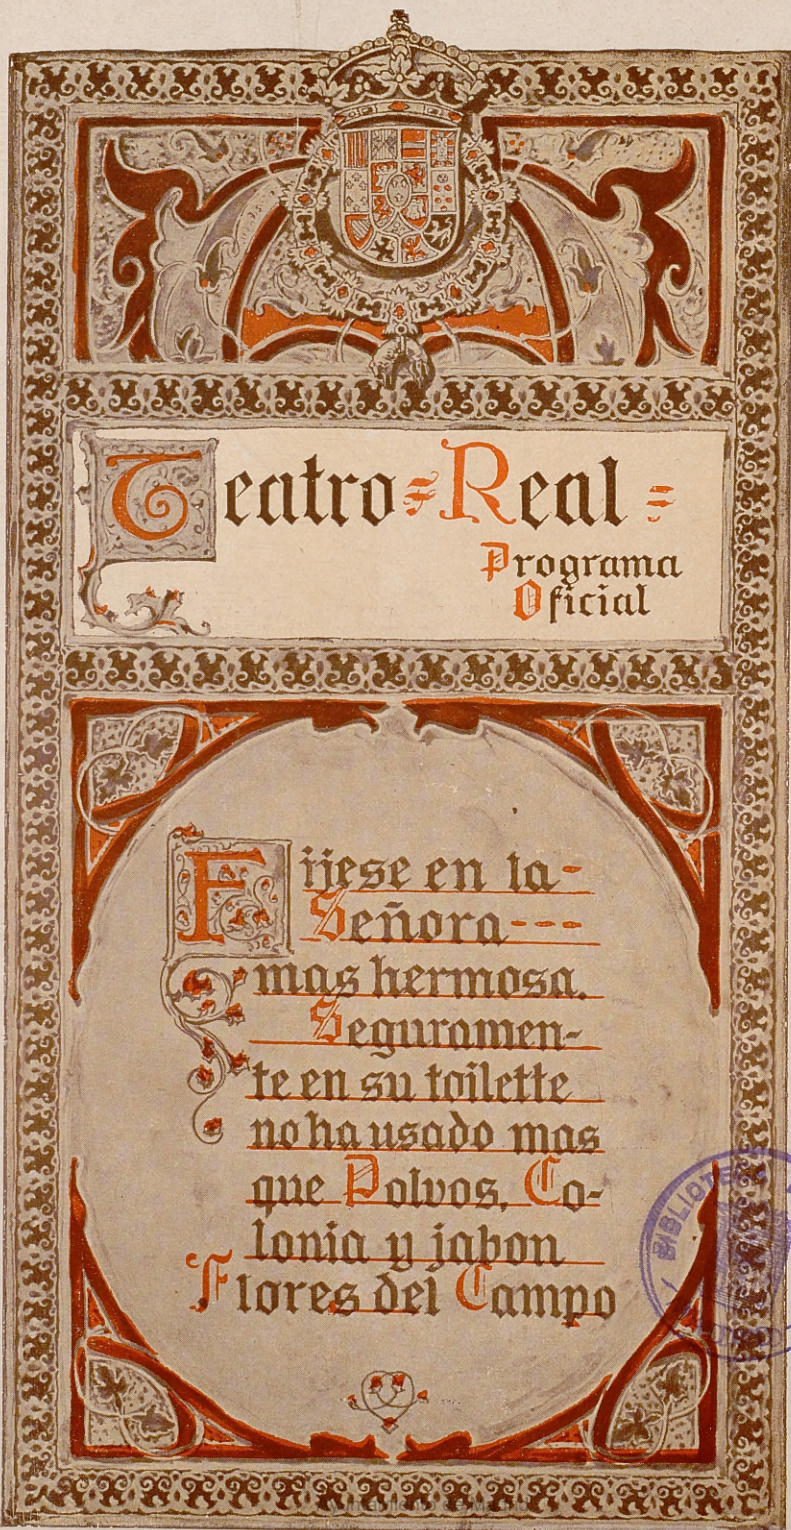 Teatro Real
Programa
Oficial
Fijese en la
Señora
mas hermosa.
Seguramen-
te en su toilette
no ha usado mas
que Polvos, Co-
lonia y jabon
Flores del Campo
Ayuntamiento de Madrid